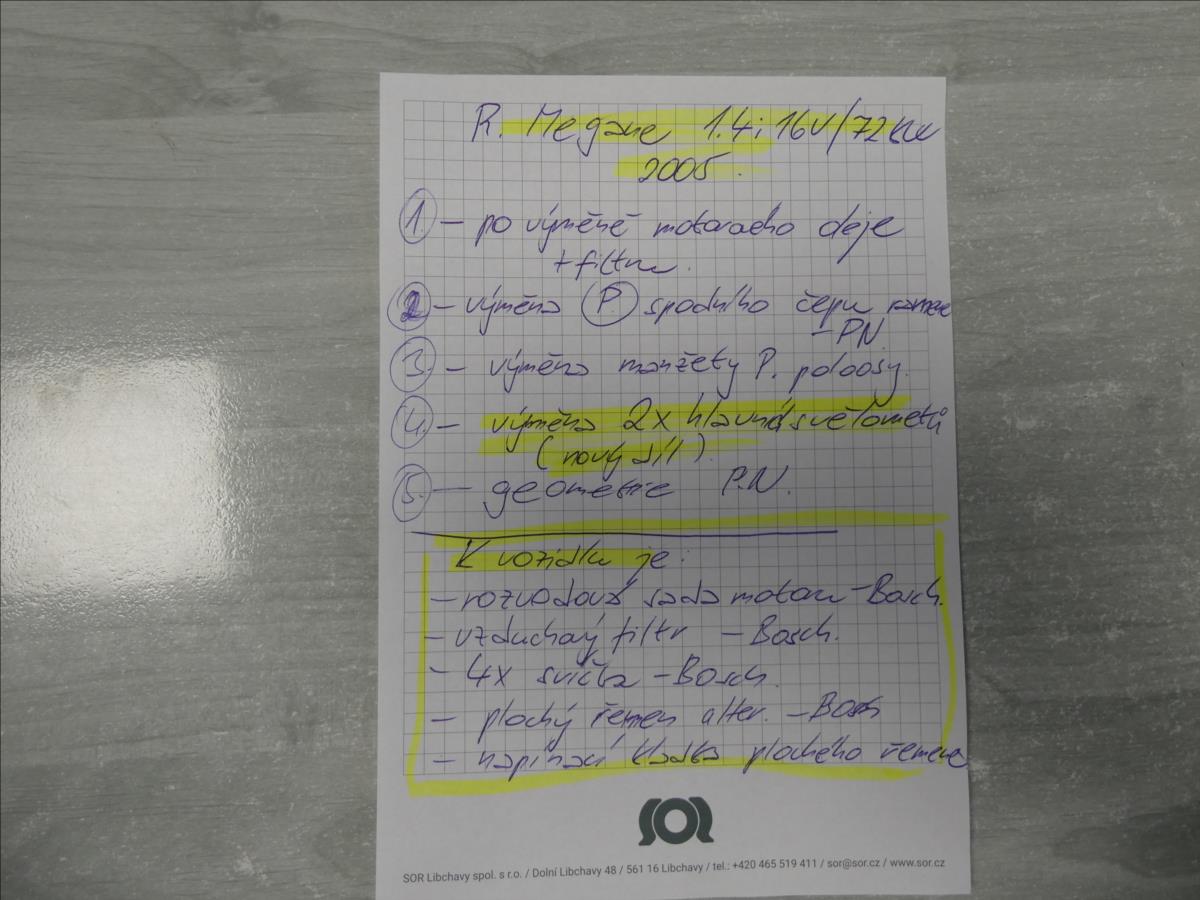 R. Megane 1.4i 16V/72kW
2005.
1. – po výměně motoracho deje
+ filtru.
2 – výměna P. spodního čepu ramene
– PN
3. – výměna manžety P. poloosy.
4. – výměna 2x hlavních světlometů
(nový díl).
5. – geometrie P.N.
K vozidlu je:
– rozvodová sada motoru – Bosch.
– vzduchový filtr – Bosch.
– 4x svíčka – Bosch.
– plochý řemen alter. – Bosch
– napínací kladka plochého řemene
SOR
SOR Libchavy spol. s r.o. / Dolní Libchavy 48 / 561 16 Libchavy / tel.: +420 465 519 411 / sor@sor.cz / www.sor.cz